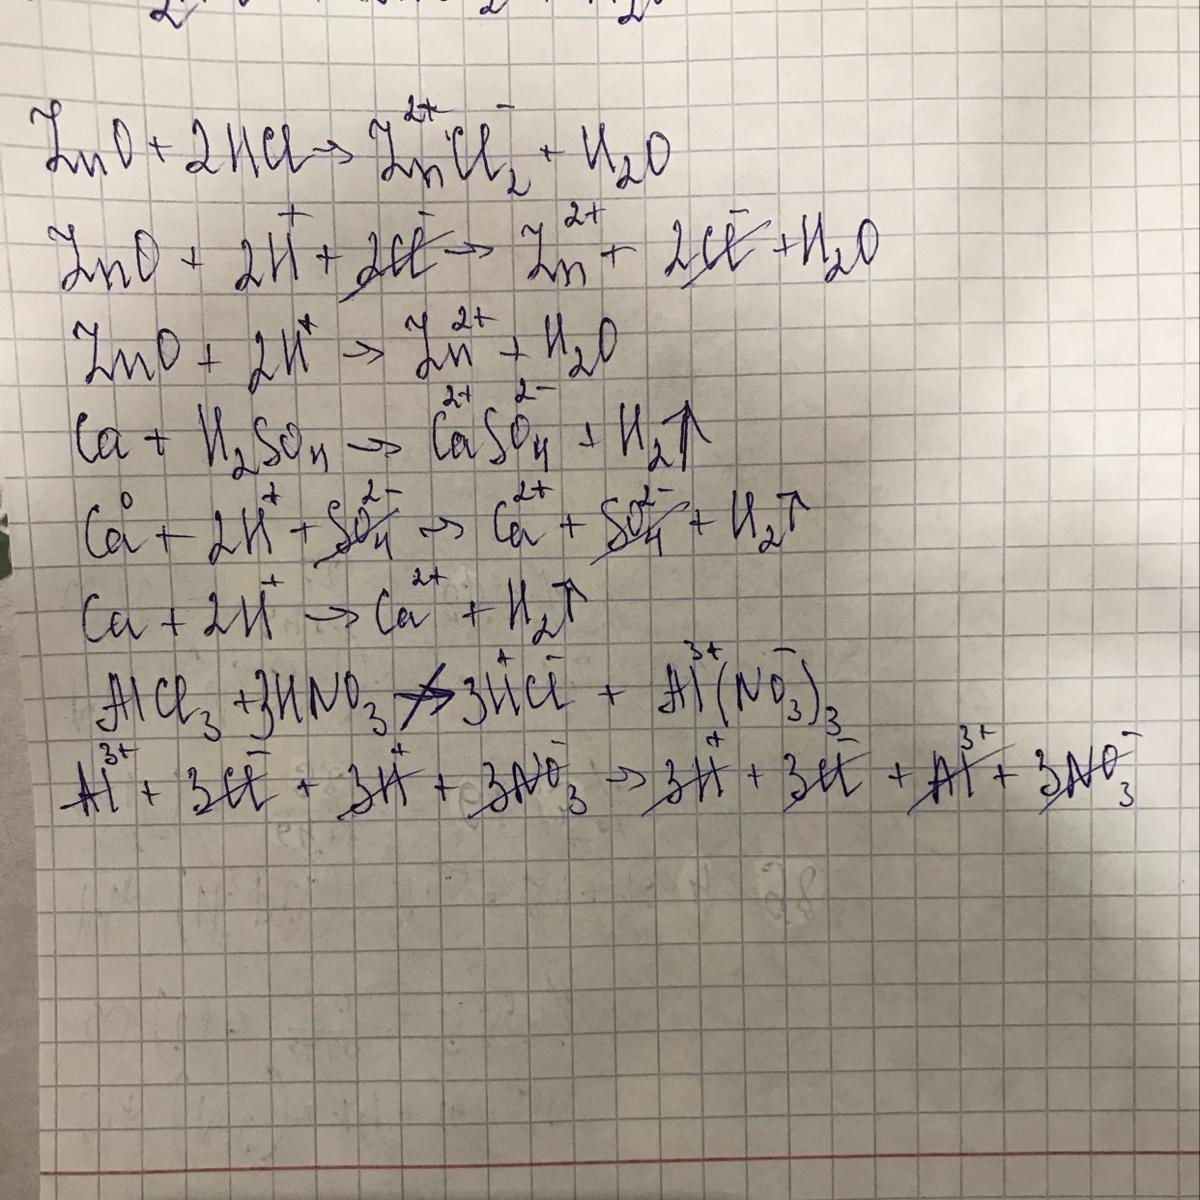 ZnO + 2HCl → Zn²⁺Cl⁻₂ + H₂O
ZnO + 2H⁺ + 2Cl⁻ → Zn²⁺ + 2Cl⁻ + H₂O
ZnO + 2H⁺ → Zn²⁺ + H₂O
Ca + H₂SO₄ → Ca²⁺SO₄²⁻ + H₂↑
Ca⁰ + 2H⁺ + SO₄²⁻ → Ca²⁺ + SO₄²⁻ + H₂↑
Ca + 2H⁺ → Ca²⁺ + H₂↑
AlCl₃ + 3HNO₃ ↛ 3H⁺Cl⁻ + Al³⁺(NO₃⁻)₃
Al³⁺ + 3Cl⁻ + 3H⁺ + 3NO₃⁻ → 3H⁺ + 3Cl⁻ + Al³⁺ + 3NO₃⁻